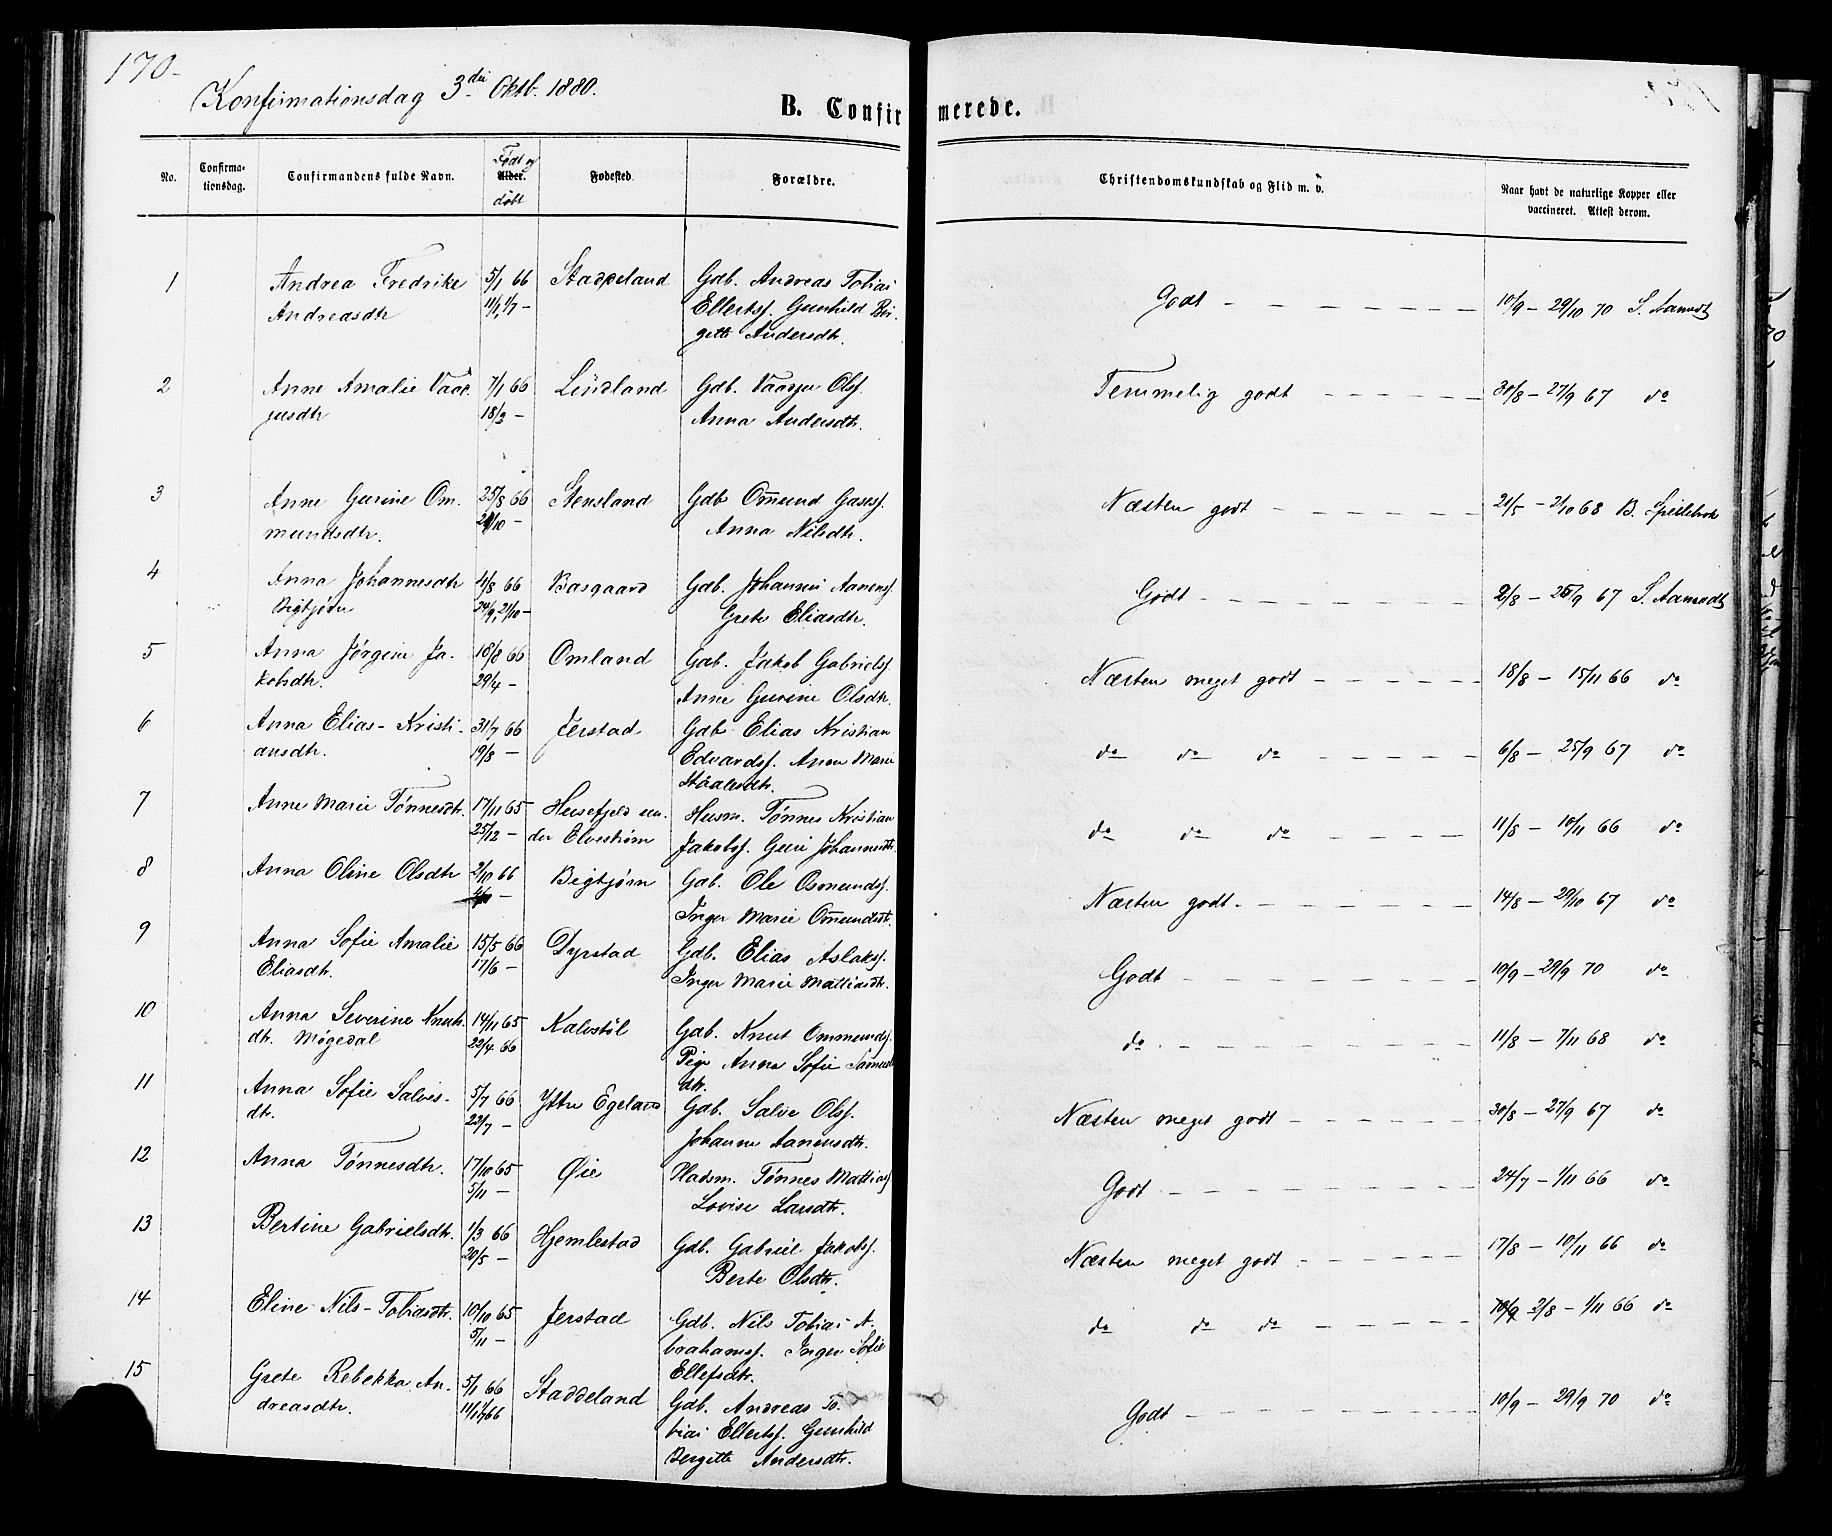 170-
Konfirmationsdag 3die Oktb. 1880.
B. Confirmerede.
No.
Confirma-
tionsdag.
Confirmandens fulde Navn.
Født og
Alder.
døbt
Fødested
Forældre.
Christendomskundskab og Flid m. v.
Naar havt de naturlige Kopper eller
vaccineret. Attest derom.
1 Andrea Fredrike 5/1 66 Staddeland Gdb. Andreas Tobias
Andreasdtr 11/1, 1/7 – Ellertss. Gunhild Bir-
gitte Andersdtr.
Godt 10/9 – 29/10 70 S. Aamodt
2 Anne Amalie Vaad- 7/1 66 Lindland Gdb. Olss.
jusdtr 18/2 – Anna Andersdtr.
Temmelig godt 30/8 – 27/9 67 do
3 Anne Gurine Om- 25/8 66 Stensland Gdb Omund Gasess.
mundsdtr. 21/10 – Anna Nilsdtr.
Næsten godt 21/5 – 2/10 68 B. Spillebrok
4 Anna Johannesdtr 4/8 66 Basgaard Gdb. Johannes Aanenss.
Bigtjørn 24/9, 21/10 – Grete Eliasdtr.
Godt 2/8 – 25/9 67 S. Aamodt
5 Anna Jørgine Ja- 18/8 66 Omland Gdb. Jakob Gabrielss.
kobsdtr. 29/4 – Anne Gurine Olsdtr.
Næsten meget godt 18/8 – 15/11 66 do
6 Anna Elias-Kristi- 31/7 66 Jerstad Gdb Elias Kristian
ansdtr. 19/8 – Edvardss. Anne Marie
Ståalesdtr.
do do do 6/8 – 25/9 67 do
7 Anne Marie Tønnesdtr. 17/11 65 Husefjeld un- Husm. Tønnes Kristian
25/12 – der Elvestrøm Jakobss. Guri Johannesdtr.
do do do 11/8 – 10/11 66 do
8 Anna Oline Olsdtr 2/10 66 Bigtjørn Gdb. Ole Osmundss.
Inger Marie Omundsdtr.
Næsten godt. 14/8 – 29/10 67 do
9 Anna Sofie Amalie 15/5 66 Dyrstad Gdb. Elias Aslakss.
Eliasdtr. 17/6 – Inger Marie Mattiasdtr.
Godt 10/9 – 29/9 70 do
10 Anna Severine Knuts- 14/11 65 Kalvstøl Gdb. Knut Ommundss.
dtr. Møgedal 22/4 66 Pige Anna Sofie Samuels-
dtr.
do. 11/8 – 7/11 68 do
11 Anna Sofie Salves- 5/7 66 Ytre Egeland Gdb. Salve Olss.
dtr. 22/7 – Johanne Aanensdtr.
Næsten meget godt 30/8 – 27/9 67 do
12 Anna Tønnesdtr. 17/10 65 Øie Pladsm. Tønnes Mattiass
5/11 – Lovise Larsdtr.
Godt 24/7 – 1/11 66 do
13 Bertine Gabrielsdtr. 1/3 66 Hjemlestad Gdb. Gabriel Jakobss.
20/5 – Berte Olsdtr.
Næsten meget godt 17/8 – 10/11 66 do
14 Eline Nils-Tobiasdtr. 10/10 65 Jerstad Gdb. Nils Tobias A-
5/11 – brahamss. Inger Sofie
Ellefsdtr.
do do do 10/9 2/8 – 1/11 66 do
15 Grete Rebekka An- 5/1 66 Staddeland Gdb. Andreas To-
dreasdtr. 11/1 1/7 66 bias Ellertss. Gunhild
Bergitte Andersdtr.
Godt 10/9 – 29/9 70 do